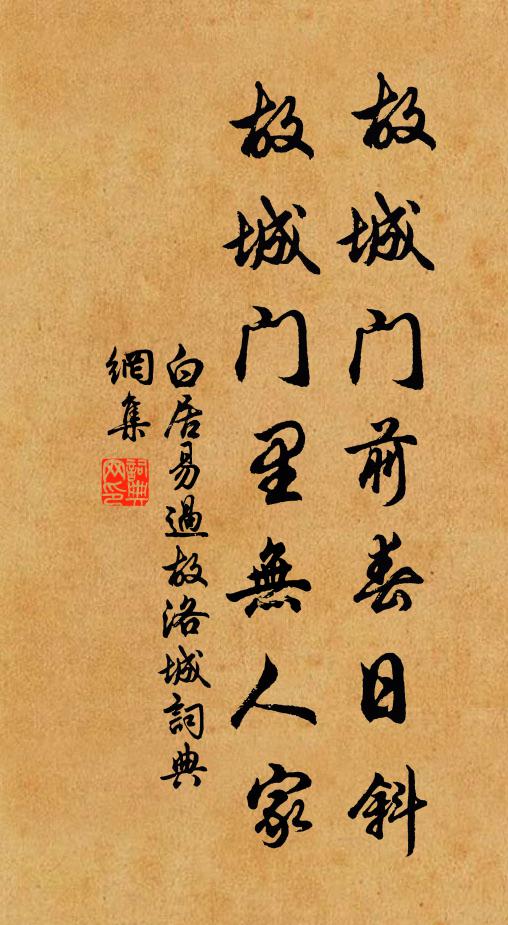 故城门前春日斜
故城门里無人家
白居易過故洛城詞典
網集
詞典
网印